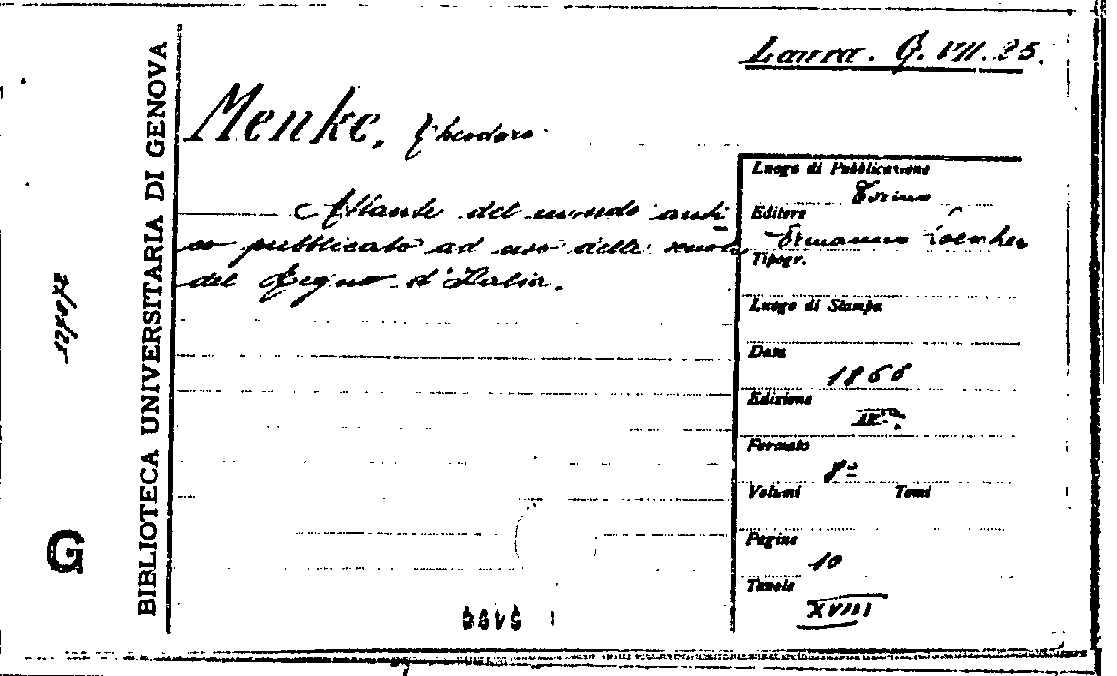 Laura. G. VII. 25.
Menke, Theodoro
Atlante del mondo anti
co pubblicato ad uso delle scuole
del Regno d'Italia.
Luogo di Pubblicazione
Torino
Editore
Ermanno Loescher
Tipogr.
Luogo di Stampa
Data
1866
Edizione
Formato
8º
Volumi Tomi
Pagine
10
Tavole
XVIII
BIBLIOTECA UNIVERSITARIA DI GENOVA
G